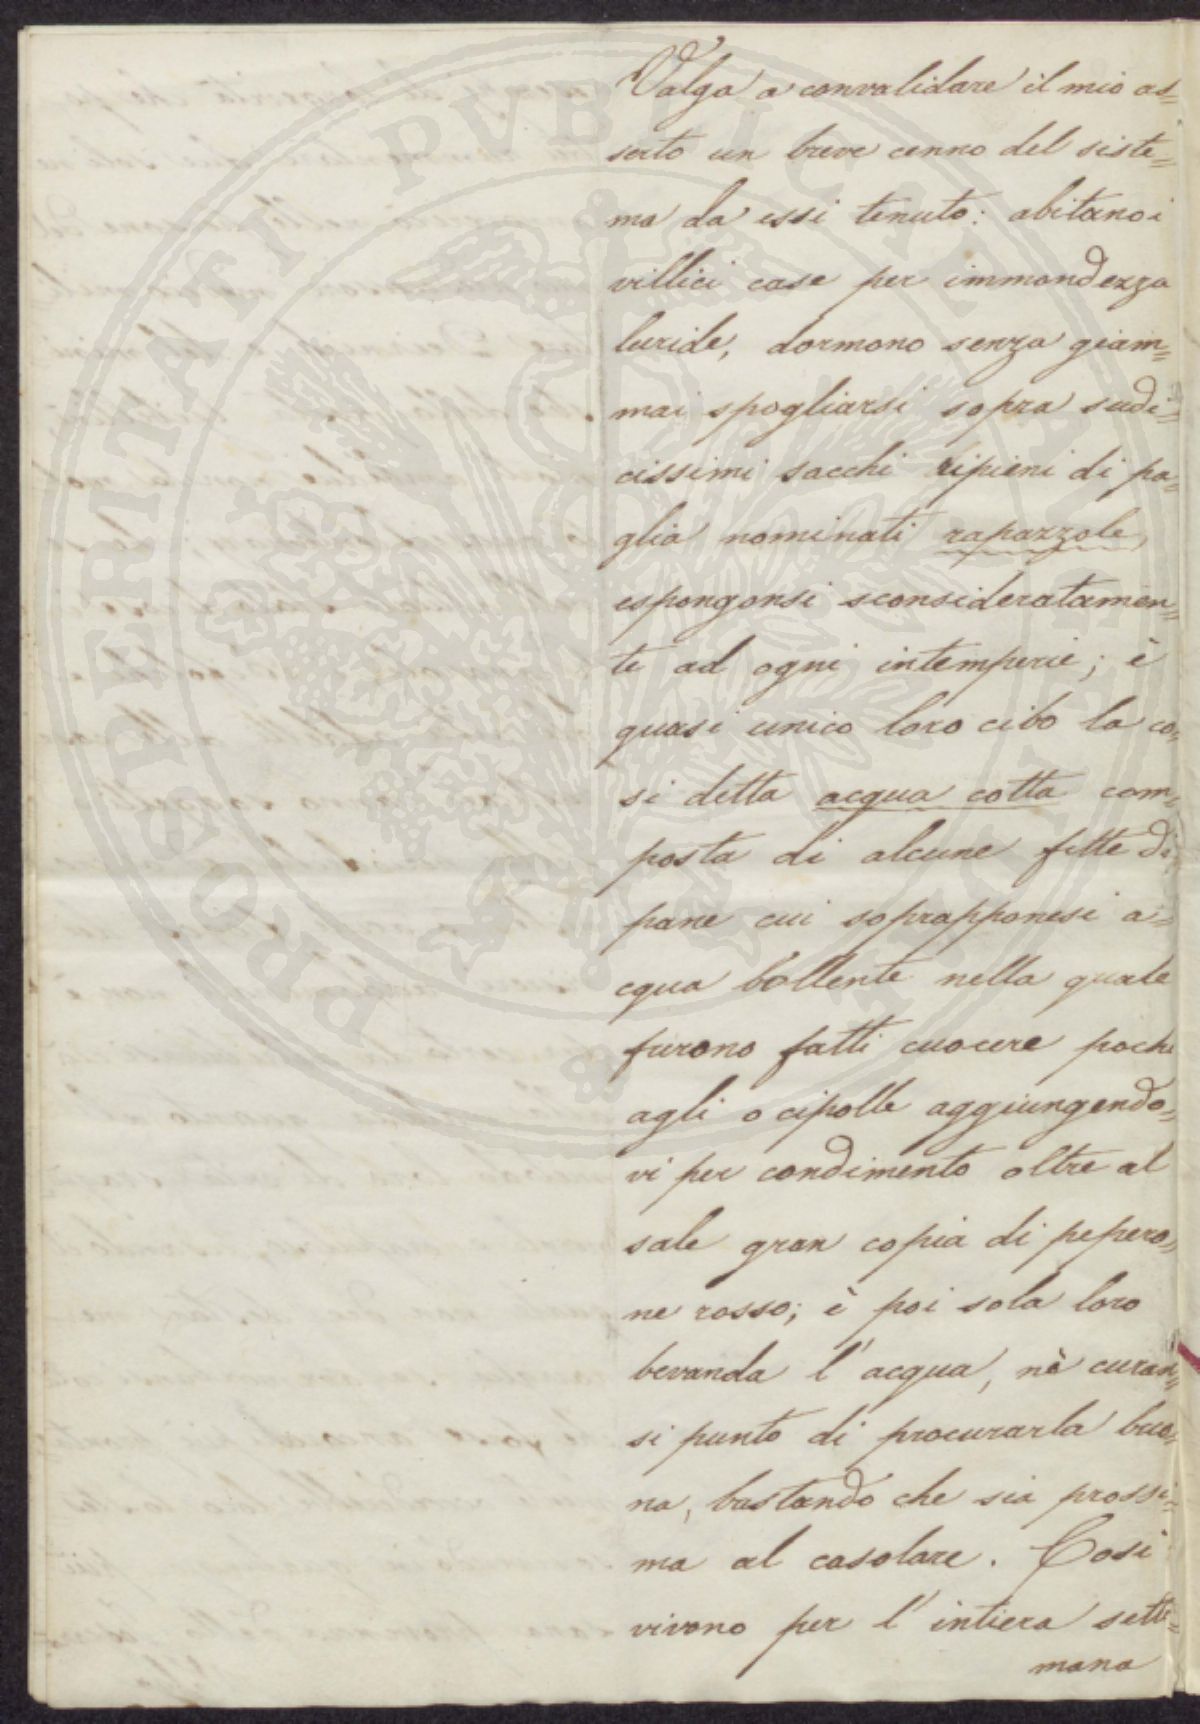 Valga a convalidare il mio as=
serto un breve cenno del siste=
ma da essi tenuto: abitano i
villici case per immondezza
luride, dormono senza giam=
mai spogliarsi sopra sudi=
cissimi sacchi ripieni di pa=
glia nominati rapazzole,
espongonsi sconsideratamen=
te ad ogni intemperie; è
quasi unico loro cibo la co=
si detta acqua cotta com=
posta di alcune fette di
pane cui soprapponesi a=
cqua bollente nella quale
furono fatti cuocere pochi
agli o cipolle aggiungendo=
vi per condimento oltre al
sale gran copia di pepero=
ne rosso; è poi sola loro
bevanda l'acqua, nè curan=
si punto di procurarla buo=
na, bastando che sia prossi=
ma al casolare. Così
vivono per l'intiera setti=
mana
PROSPERITATI PVBLICAE